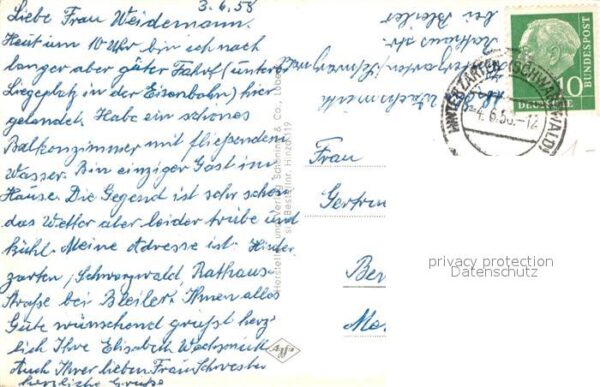 3.6.58
Liebe Frau Weidemann.
Heut um 10 Uhr bin ich nach
langer aber guter Fahrt (unten
Liegeplatz in der Eisenbahn) hier
gelandet. Habe ein schönes
Balkonzimmer mit fließendem
Wasser. Bin einziger Gast im
Hause. Die Gegend ist sehr schön
das Wetter aber leider trübe und
kühl. Meine Adresse ist: Hinter
zarten/Schwarzwald Rathaus-
straße bei Bleiler. Ihnen alles
Gute wünschend grüßt herz
lich Ihre Elisabeth
Auch Ihrer lieben Frau Schwester
herzliche Grüße
bei Bleiler
Rathausstr.
Hersteller und Verlag Schöning & Co., Lübeck
Bestellnr. Hinza 119
Agfa
Frau
Gertru
Ber
DEUTSCHE
BUNDESPOST
10
HINTERZARTEN (SCHWARZWALD)
-4.6.58.-12
1-
privacy protection
Datenschutz